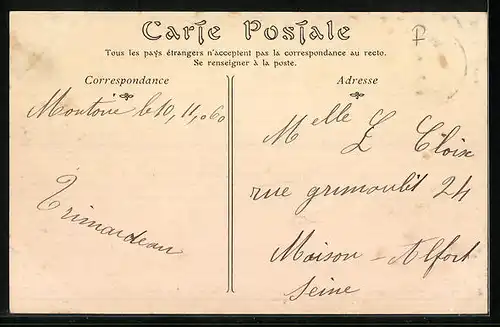 Carte Postale
Tous les pays étrangers n'acceptent pas la correspondance au recto.
Se renseigner à la poste.
Correspondance
Adresse
le 10, 11,
Trimardeau
Melle L Cloix
rue grimoult 24
Maison - Alfort
Seine